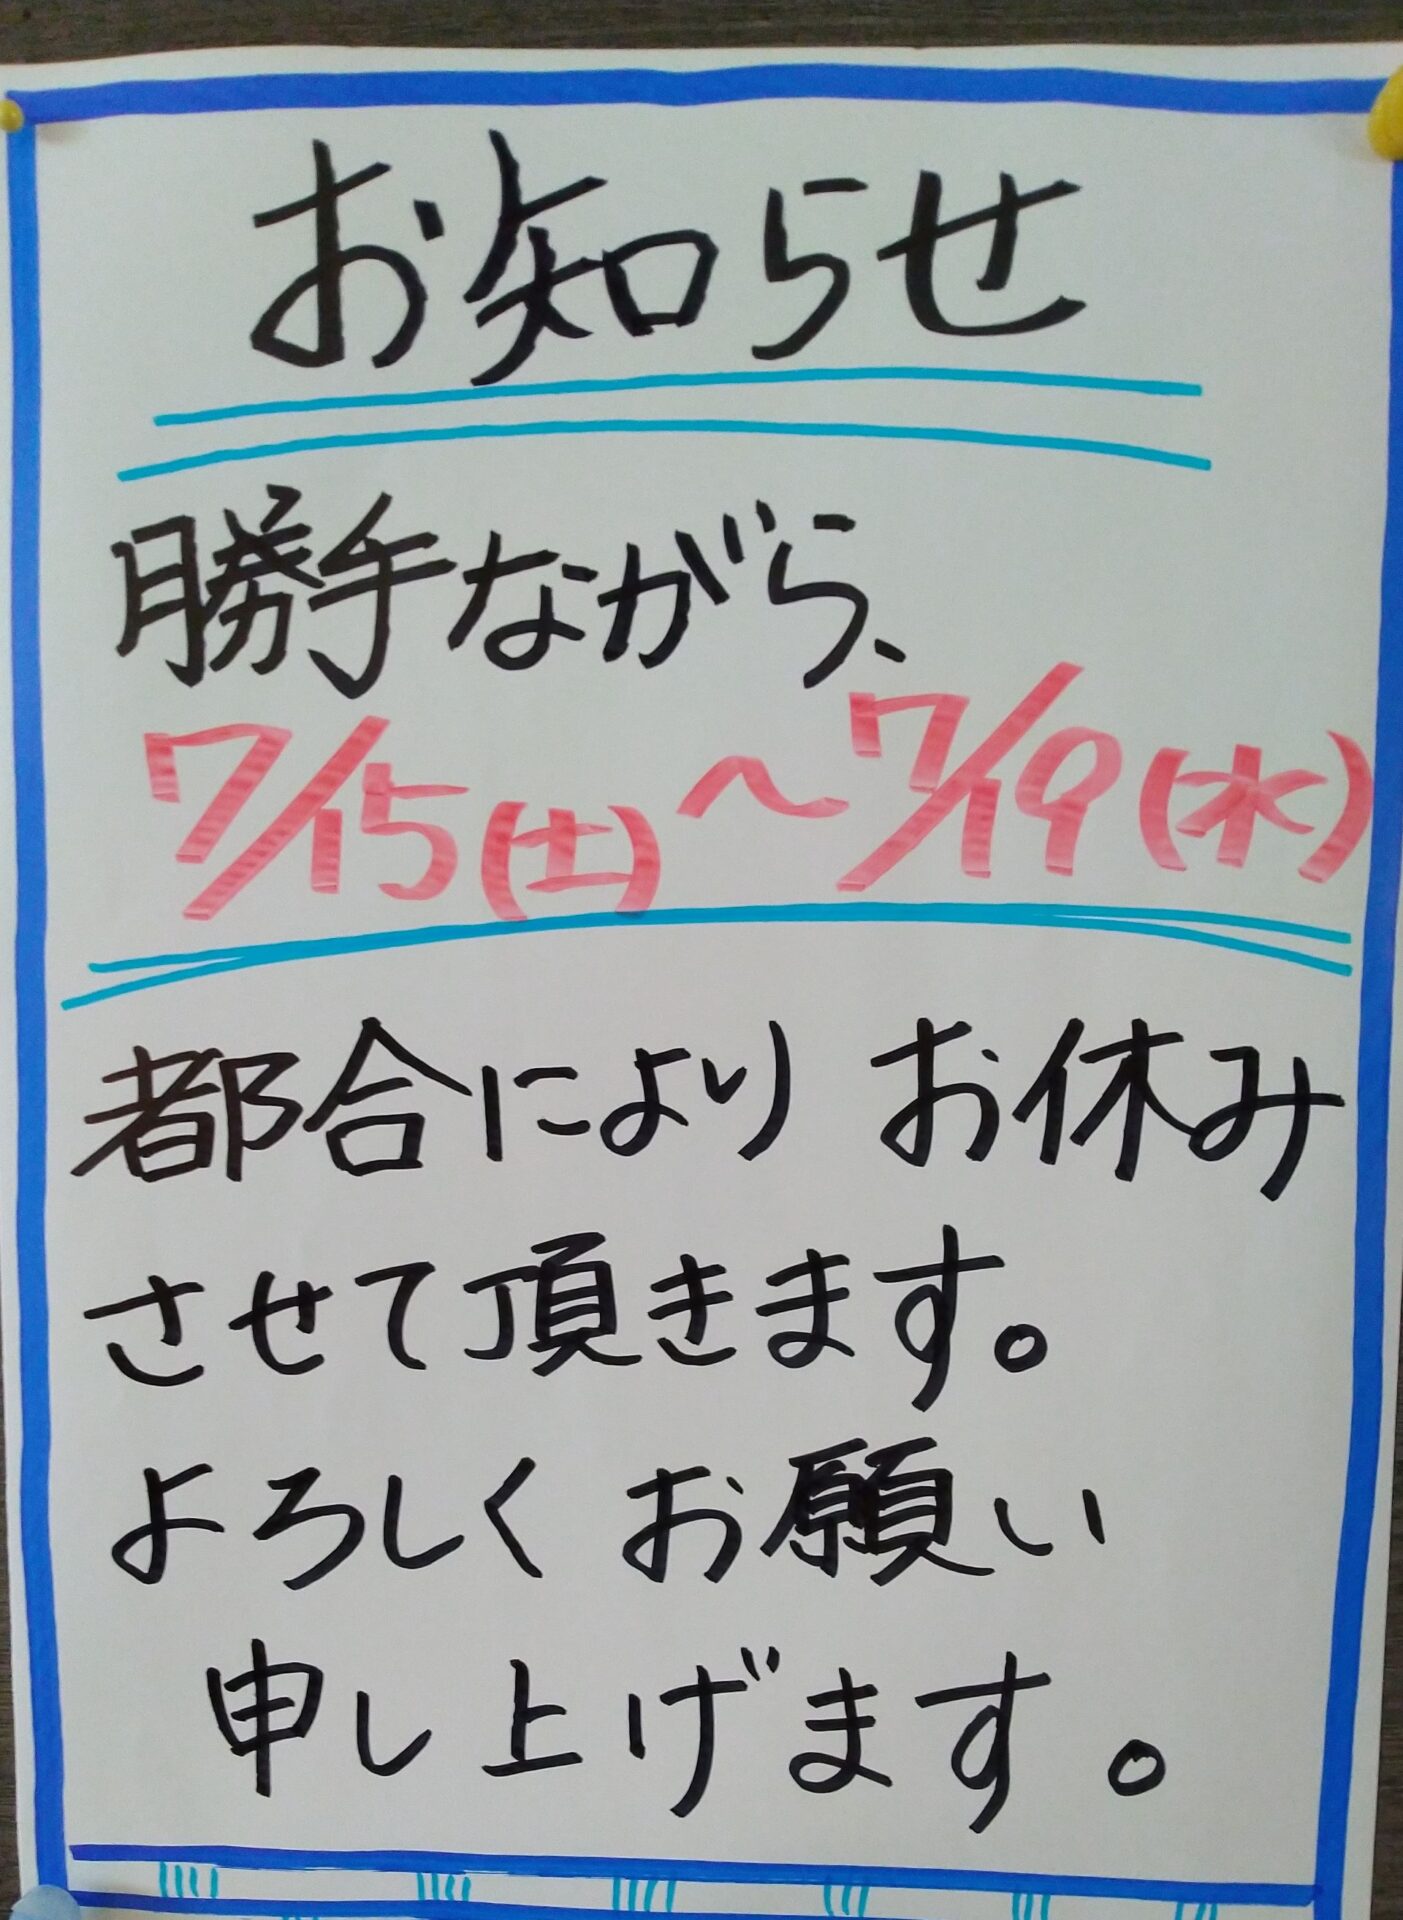 お知らせ
勝手ながら、
7/15(土)～7/19(水)
都合により お休み
させて頂きます。
よろしく お願い
申し上げます。